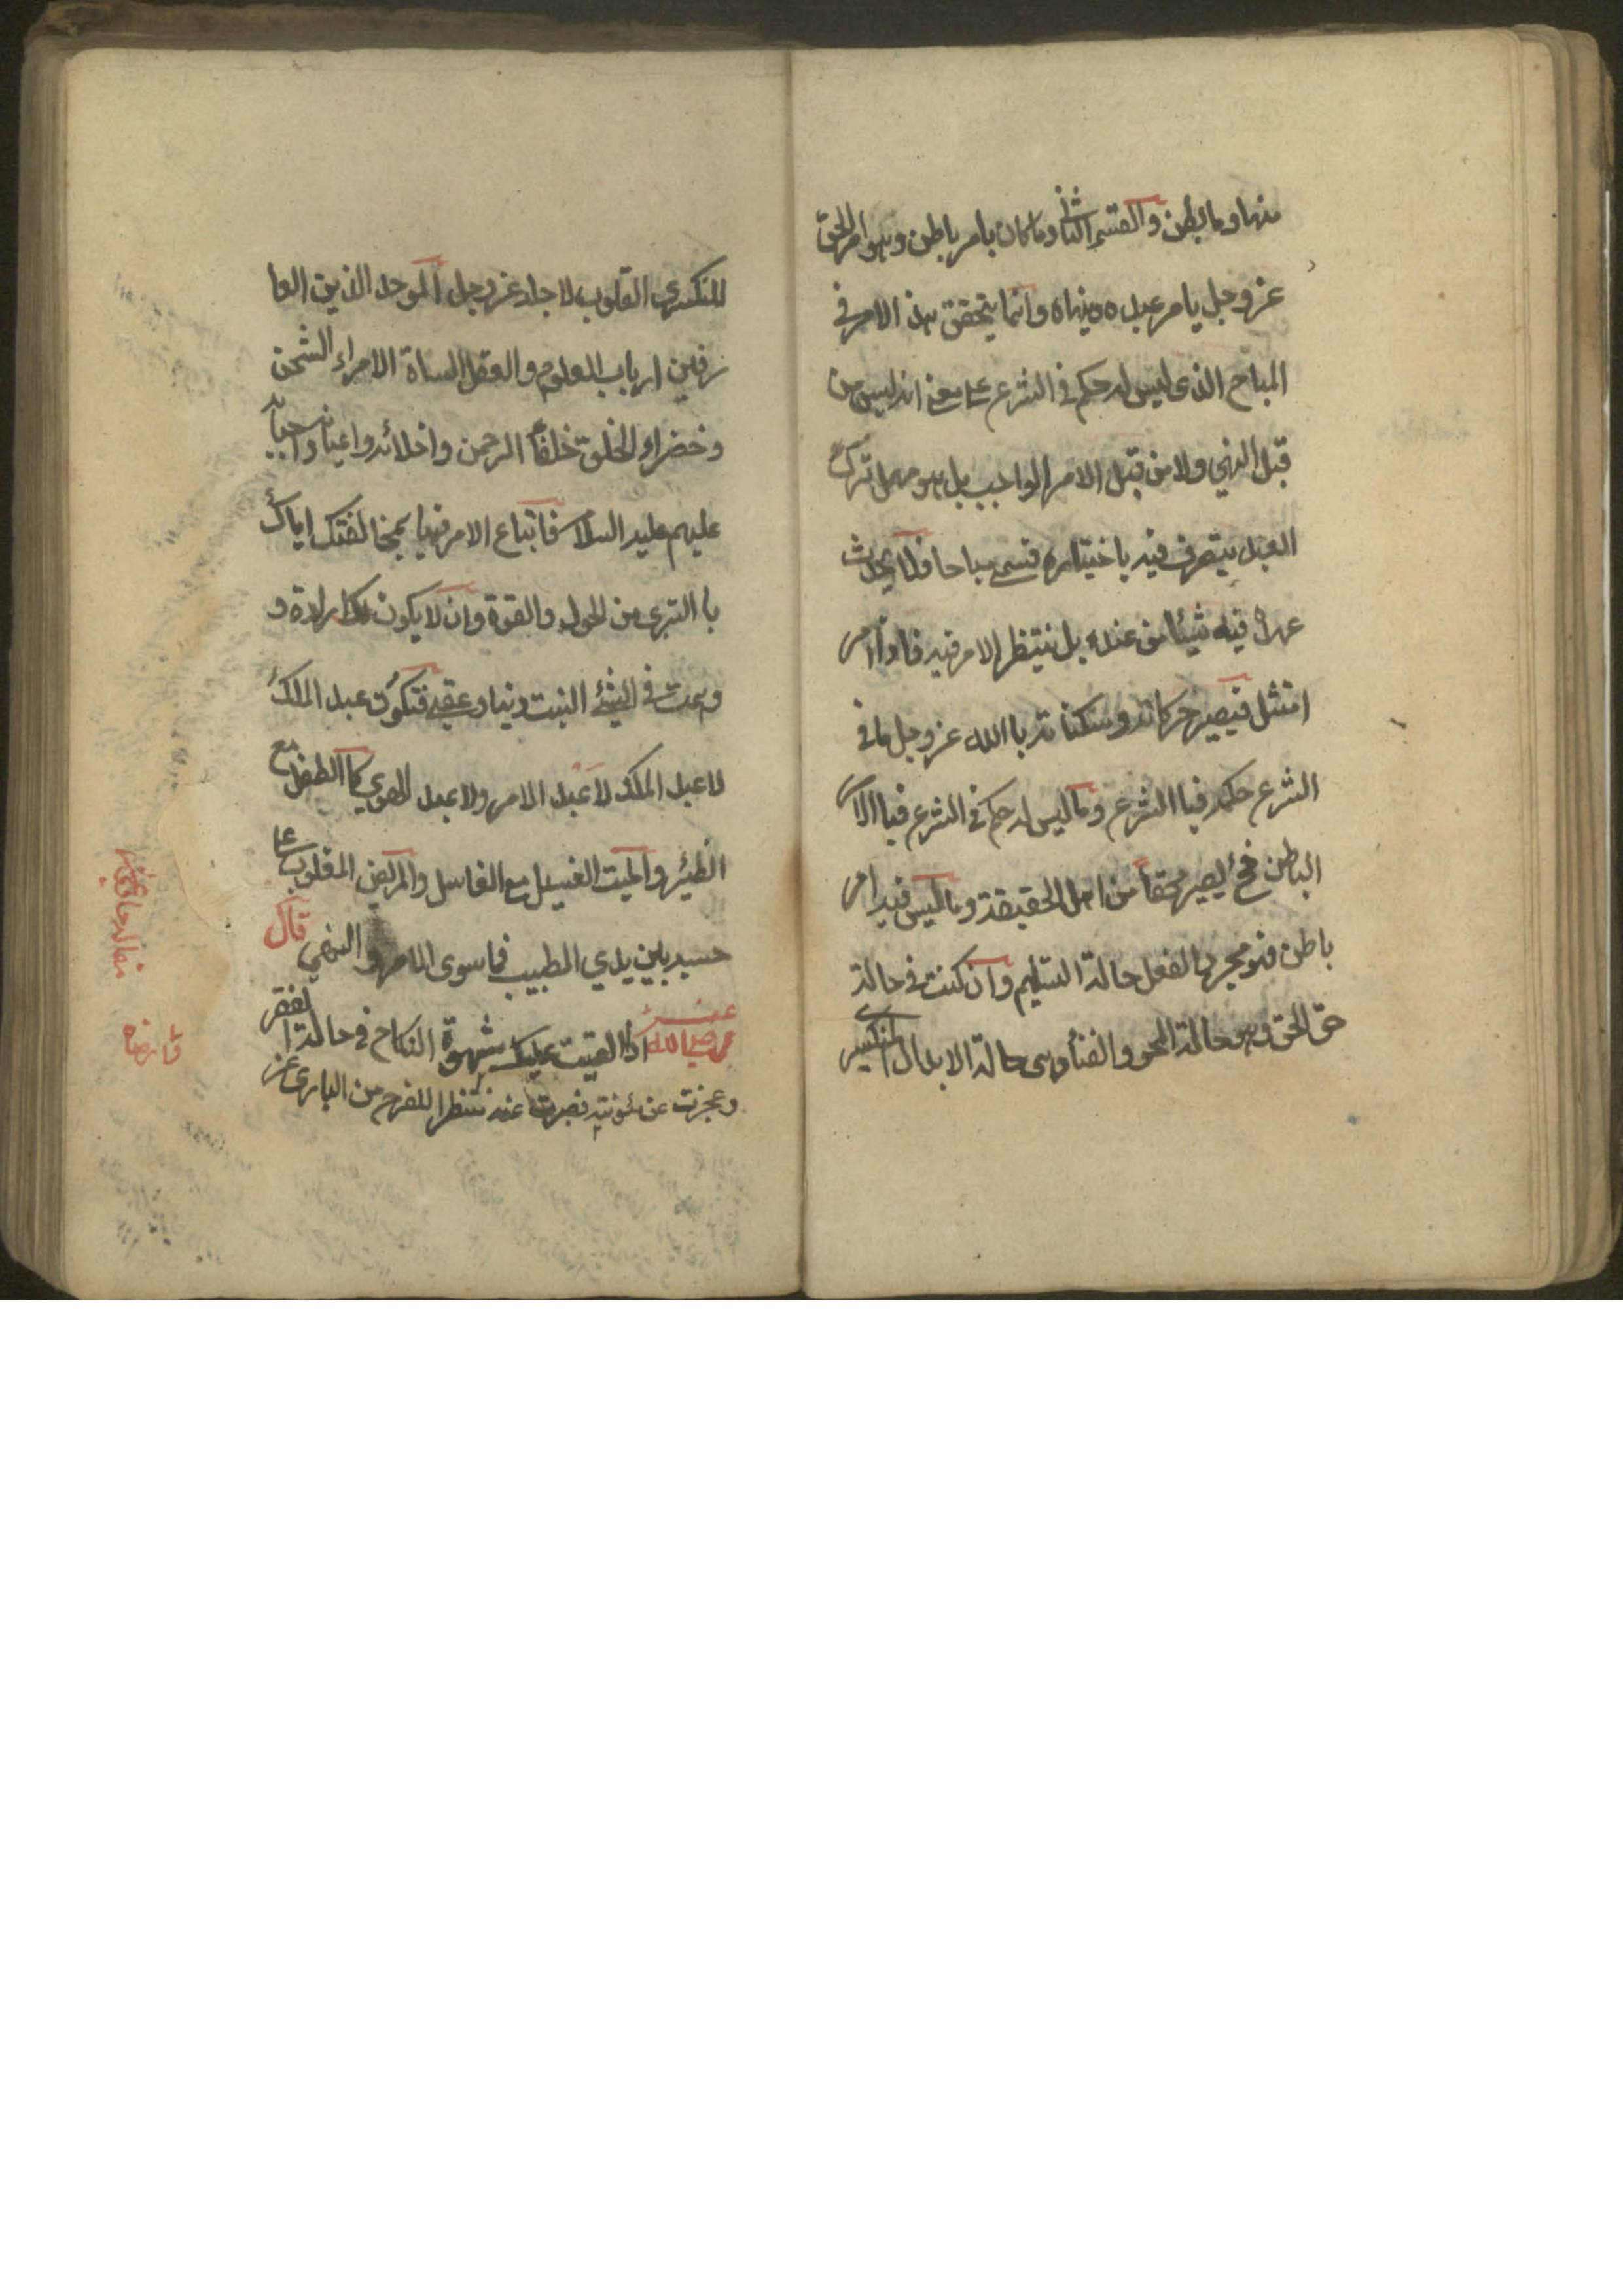 منها وما بطن والقسم الثانی وما كان بامر باطن وهو امر الحق
عز وجل يامر عبده وينهاه وانما يتحقق هذا الامر فی
المباح الذی ليس له حكم فی الشرع علی معنی انه ليس من
قبل النهی ولا من قبل الامر الواجب بل هو مهمل ترك
العبد يتصرف فيه باختياره فسمی مباحا فلا يحدث
فيه شيئا من عنده بل ينتظر الامر فيه فاذا امر
امتثل فيصير حركاته وسكناته باالله عز وجل ما فی
الشرع حكمه فباالشرع وما ليس له حكم فی الشرع فباالامر
الباطن فح يصير محقا من اهل الحقيقة وما ليس فيه امر
باطن فهو مجرد الفعل حالة التسليم وان كنت فی حالة
حق الحق وهی حالة المحو والفناء وهی حالة الابدال المنكسری
المنكسری القلوب لاجله عز وجل الموحد الذين العا
رفين ارباب العلوم والعقل الساة الامراء الشحن
وخضراء الخلق خلفاء الرحمن واخلائه واعيانه واحبائه
عليهم عليه السلام فاتباع الامر فيها بمخالفتك اياك
باالتبری من الحول والقوة وان لا يكون لك ارادة و
وهمت فی الشیٔ البتت دنيا وعقبی فتكون عبد الملك
لا عبد الملك لا عبد الامر ولا عبد الهوی كاالطفل مع
الظئر والميت الغسيل مع الغاسل والمريض المقلوب علی
جنبيه بين يدی الطبيب فيما سوی الامر والنهی قال
رضی الله عنه اذا القيت عليك شهوة النكاح فی حالة الفقر
وعجزت عن مؤنته فصبرت عنه منتظرا للفرج من الباری عز